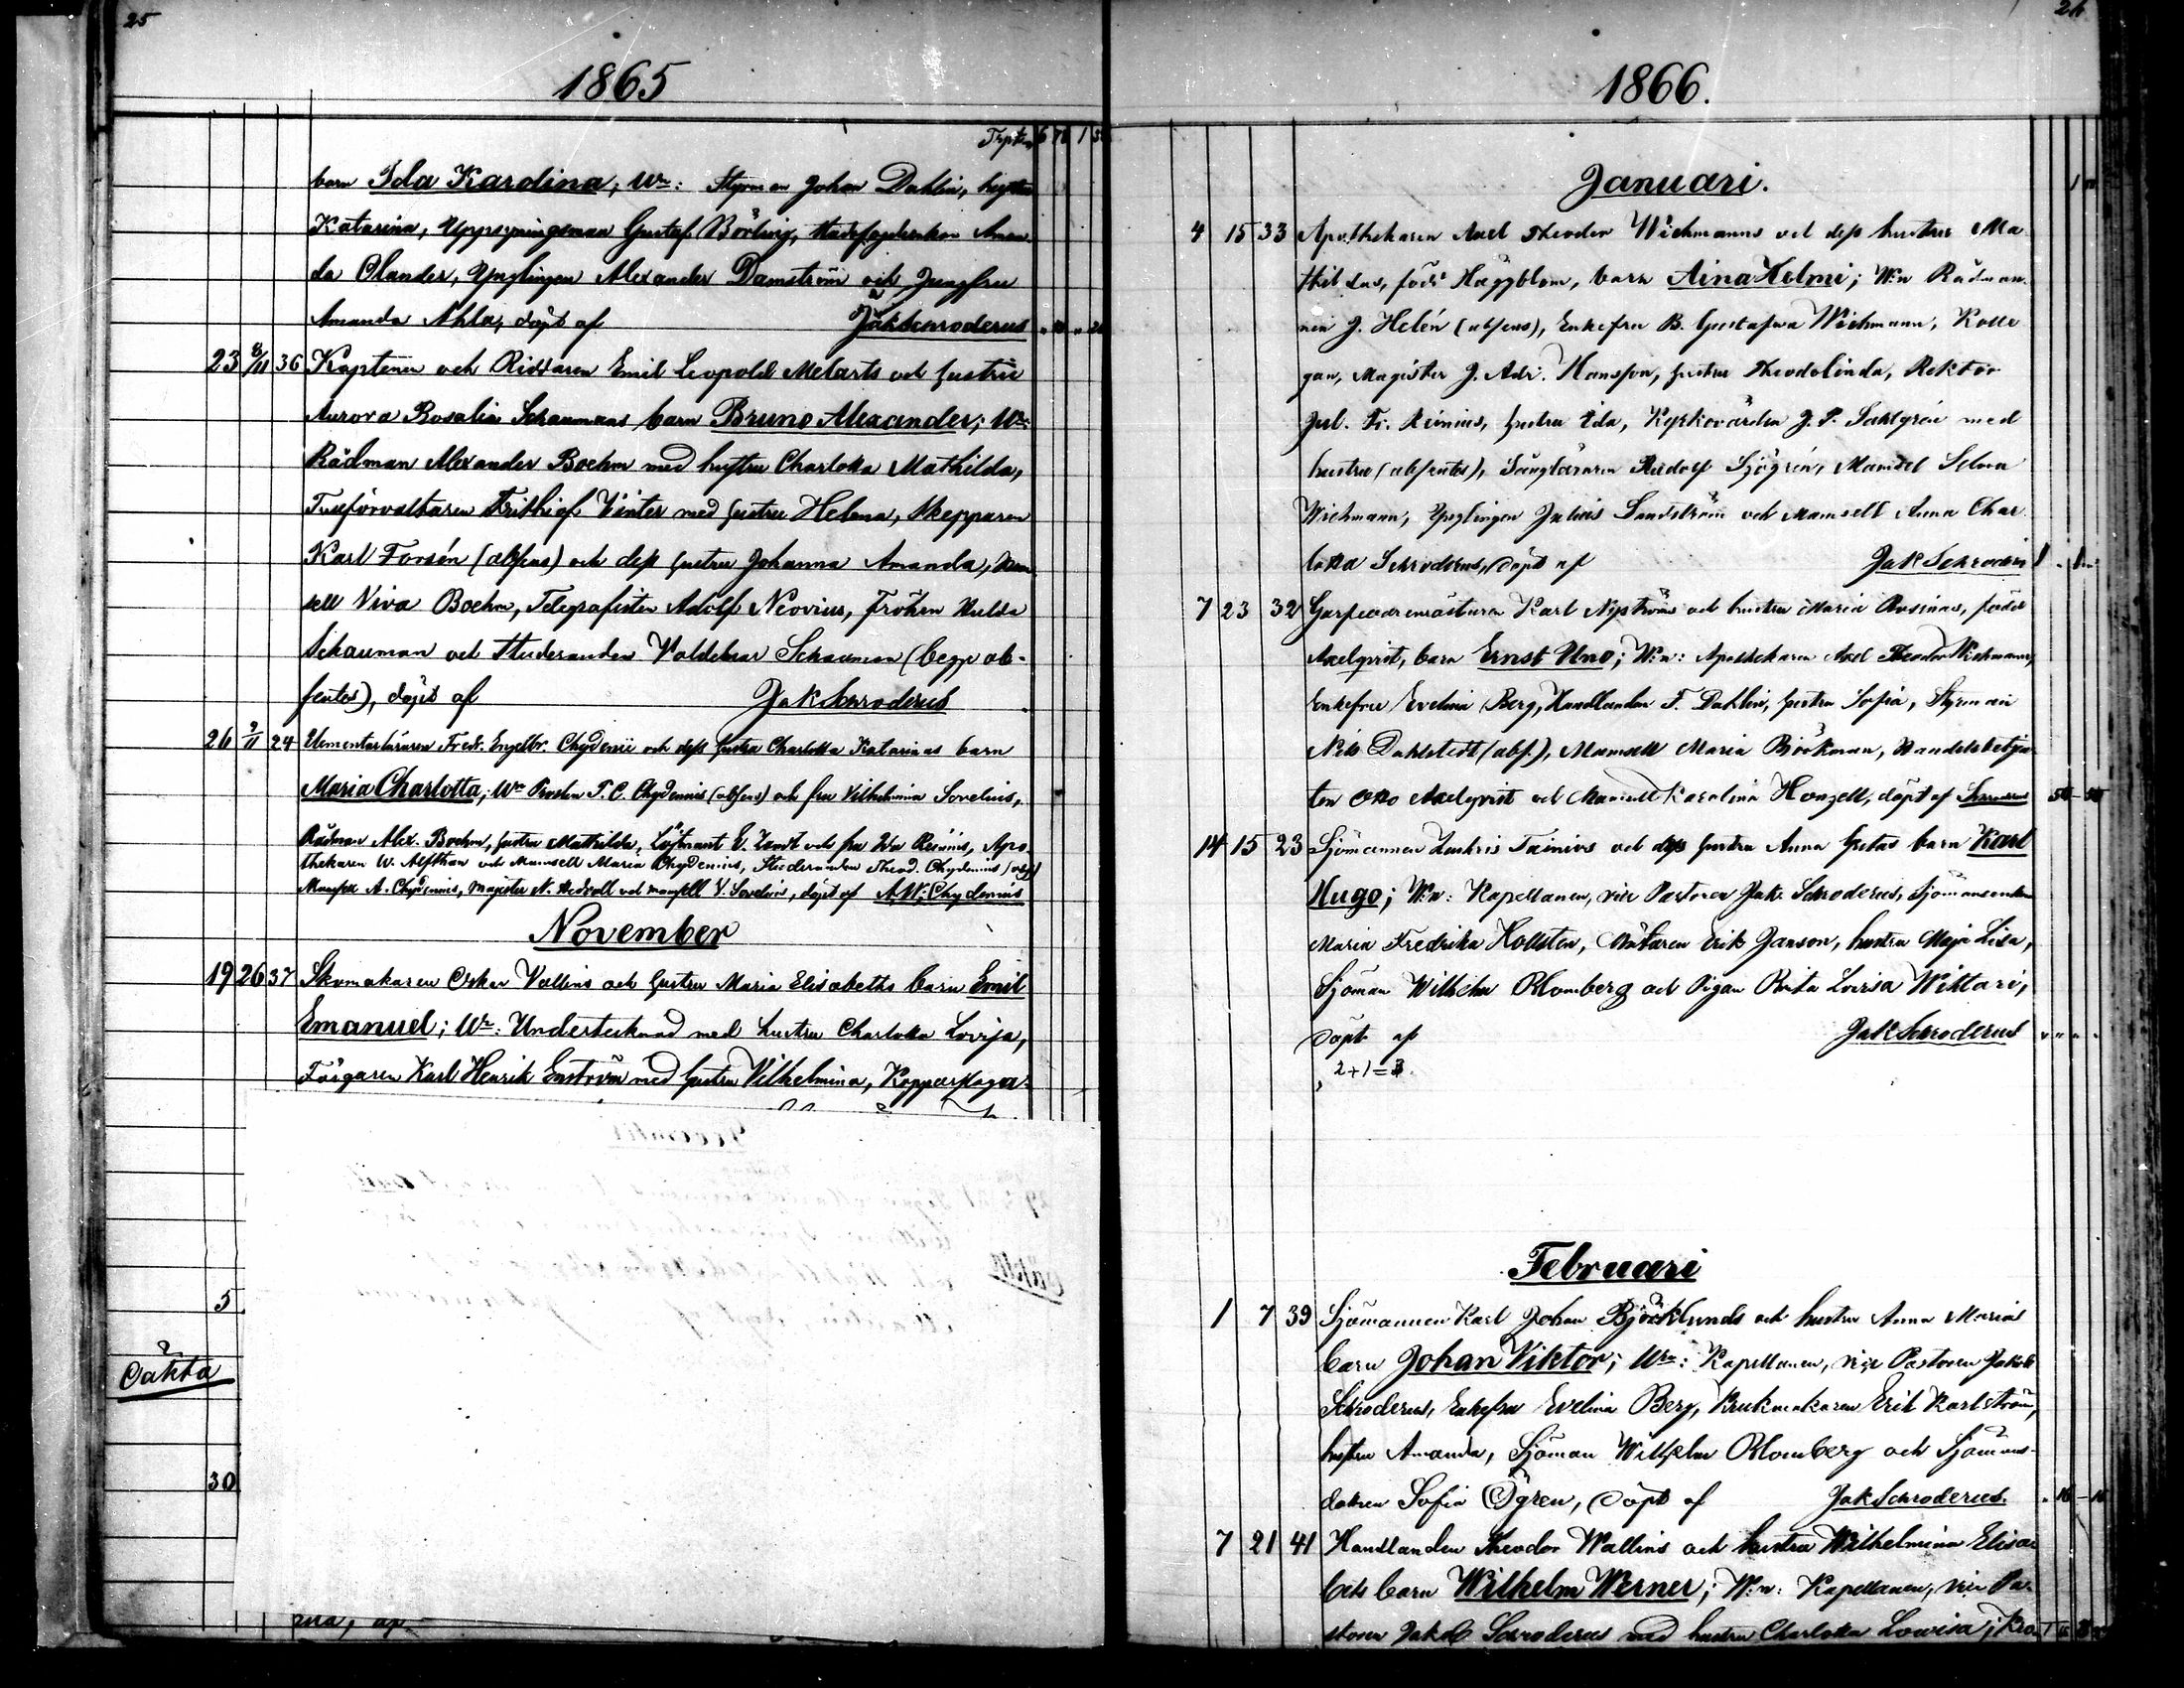 25
1865
Trpt 6 78 1 5
barn Ida Karolina; Wn: Styrman Johan Dahlin, hustru
Katarina, Uppsyningsman Gustaf Börling, Aman
da Olander, Ynglingen Alexander Damström och Jungfru
Amanda Ahla, döpt af JakSchroderus
23 8/11 36 Kaptenen och Riddaren Emil Leopold Melarts och hustru
Aurora Rosalia Schaumans barn Bruno Alexander; Wn:
Rådman Alexander Boehm med hustru Charlotta Mathilda,
Tullförvaltaren Frithiof Vinter med hustru Helena, Skepparen
Karl Forsén (absens) och dess hustru Johanna Amanda, Mam
sell Viva Boehm, Telegrafisten Adolf Neovius, Fröken Hulda
Schauman och Studeranden Valdemar Schauman (begge ab-
sentes), döpt af JakSchroderus
26 9/11 24 Elementarläraren Fredr. Engelbr. Chydenii och dess hustru Charlotta Katarinas barn
Maria Charlotta; Wn Prosten J. C. Chydenius (absens) och fru Vilhelmina Sovelius,
Rådman Alex. Boehm, hustru Mathilda, Löjtnant E. och fru Reinius, Apo
thekaren W. Alfthan och Mamsell Maria Chydenius, Studeranden Theod. Chydenius (abs)
Mamsell A. Chydenius, Magister N. Hedvall och mamsell V. Sovelius, döpt af A.W. Chydenius
November
19 26 37 Skomakaren Oskar Vallins och hustru Maria Elisabeths barn Emil
Emanuel; Wn: Undertecknad med hustru Charlotta Lovisa,
Färgaren Karl Henrik Enström med hustru Vilhelmina, Kopparslaga-
5
Oäkta
30
pna, ap
26
1866.
Januari.
4 15 33 Apothekaren Axel Theodor Wichmanns och dess hustru Ma
thildas, född Häggblom, barn Aina Helmi; W:n Rådman
nen J. Helén (absens), Enkefru B. Gustafva Wichmann, Kolle
gan, Magister J. Adr. Hansson, hustru Theodolinda, Rektor
Jul. Fr. Reinius, hustru Ida, Kyrkovärden J. P. Sahlgrén med
hustru (absentes), Sångläraren Rudolf Sjögrén, Mamsel Selma
Wichmann, Ynglingen Julius Sandström och Mamsell Anna Char
lotta Schroderus, döpt af JakSchroderus
7 23 32 Garfvaremästaren Karl Nyströms och hustru Maria Rosinas, född
Axelqvist, barn Ernst Uno; W:n: Apothekaren Axel Theodor Wichmann,
Enkefru Evelina Berg, Handlanden F. Dahlin, hustru Sofia, Styrman
Nils Dahlstedt (abs.), Mamsell Maria Björkman, Handelsbetjen
ten Otto Axelqvist och Mamsell Karolina Honzell, döpt af Schroderus
14 15 23 Sjömannen Zachris Tainios och dess hustru Anna Gretas barn Karl
Hugo; W:n: Kapellanen, vice Pastoren Jak. Schroderus, Sjömansenkan
Maria Fredrika Hollsten, Mätaren Erik Janson, hustru Maja Lisa,
Sjöman Wilhelm Blomberg och Pigan Brita Lovisa Wiktari,
döpt af JakSchroderus
2+1=3.
Februari
1 7 39 Sjömannen Karl Johan Björklunds och hustru Anna Marias
barn Johan Viktor; Wn: Kapellanen, vice Pastoren Jakob
Schroderus, Enkefru Evelina Berg, Krukmakaren Erik Karlström,
hustru Amanda, Sjöman Wilhelm Blomberg och Sjömans-
dottren Sofia Ögren, döpt af JakSchroderus. 16 - 16
7 21 41 Handlanden Theodor Wallins och hustru Wilhelmina Elisa
bets barn Wilhelm Werner; W:n: Kapellanen, vice Pa-
storen Jakob Schroderus med hustru Charlotta Lowisa, Kro-